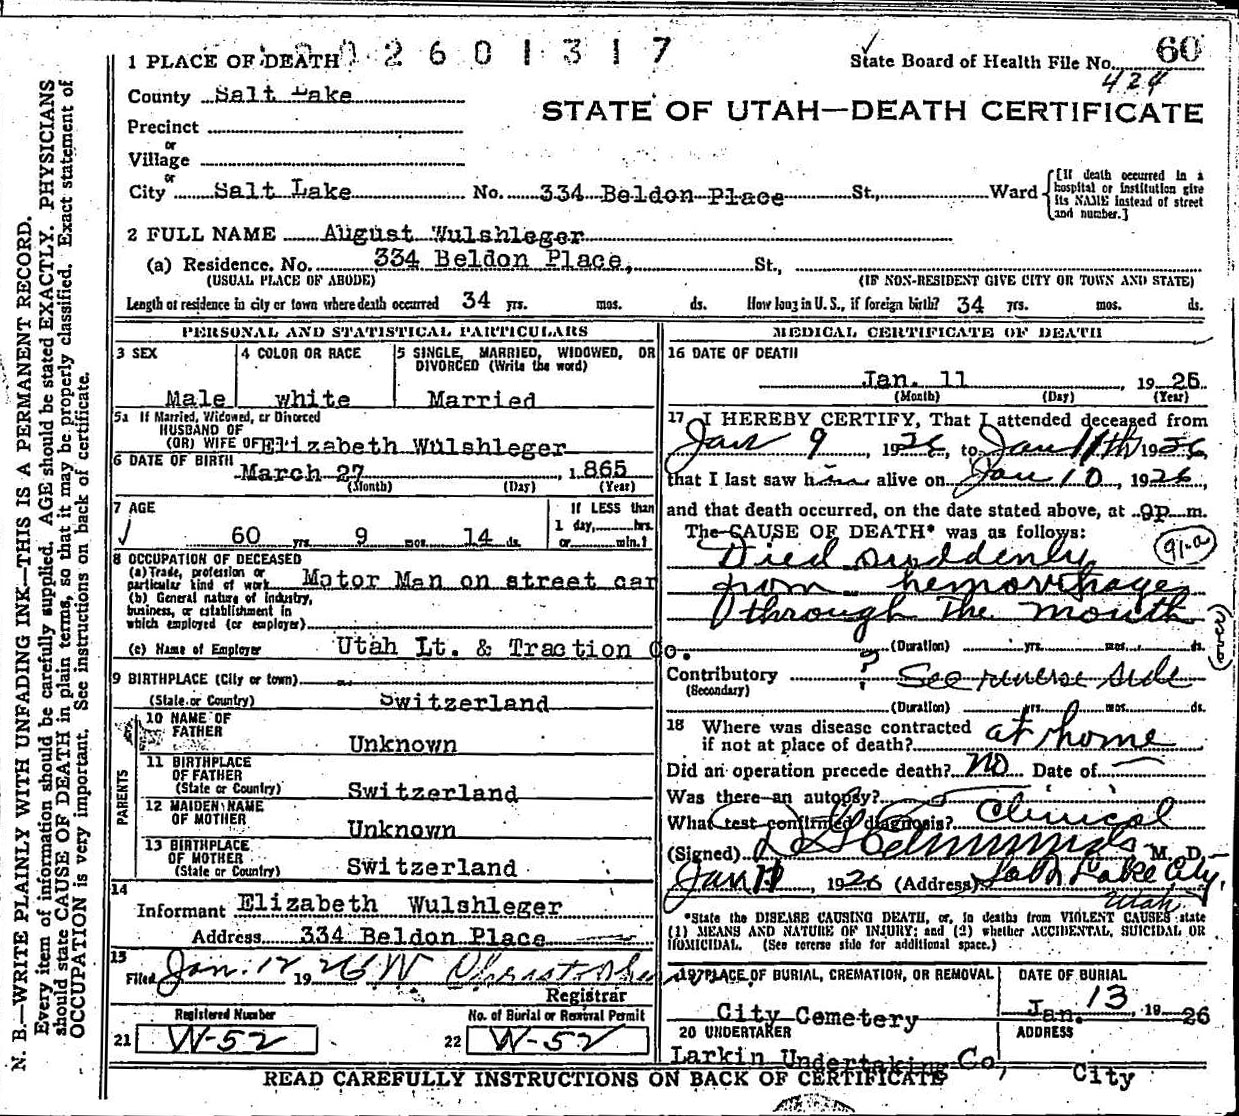 N. B.—WRITE PLAINLY WITH UNFADING INK—THIS IS A PERMANENT RECORD.
Every item of information should be carefully supplied. AGE should be stated EXACTLY. PHYSICIANS
should state CAUSE OF DEATH in plain terms, so that it may be properly classified. Exact statement of
OCCUPATION is very important. See instructions on back of certificate.
2601317
1 PLACE OF DEATH
State Board of Health File No. 60
424
County Salt Lake
STATE OF UTAH—DEATH CERTIFICATE
Precinct
or
Village
or
City Salt Lake No. 334 Beldon Place St., Ward
[If death occurred in a
hospital or institution give
its NAME instead of street
and number.]
2 FULL NAME August Wulshleger
(a) Residence. No. 334 Beldon Place, St.,
(USUAL PLACE OF ABODE) (IF NON-RESIDENT GIVE CITY OR TOWN AND STATE)
Length of residence in city or town where death occurred 34 yrs. mos. ds. How long in U. S., if foreign birth? 34 yrs. mos. ds.
PERSONAL AND STATISTICAL PARTICULARS
3 SEX
Male
4 COLOR OR RACE
white
5 SINGLE, MARRIED, WIDOWED, OR
DIVORCED (Write the word)
Married
5a If Married, Widowed, or Divorced
HUSBAND OF
(OR) WIFE OF Elizabeth Wulshleger
6 DATE OF BIRTH March 27, 1865
(Month) (Day) (Year)
7 AGE
60 yrs. 9 mos. 14 ds.
If LESS than
1 day, hrs.
or min.?
8 OCCUPATION OF DECEASED
(a) Trade, profession or
particular kind of work Motor Man on street car
(b) General nature of industry,
business, or establishment in
which employed (or employer)
(c) Name of Employer Utah Lt. & Traction Co.
9 BIRTHPLACE (City or town)
(State or Country) Switzerland
PARENTS
10 NAME OF
FATHER
Unknown
11 BIRTHPLACE
OF FATHER
(State or Country) Switzerland
12 MAIDEN NAME
OF MOTHER
Unknown
13 BIRTHPLACE
OF MOTHER
(State or Country) Switzerland
14
Informant Elizabeth Wulshleger
Address 334 Beldon Place
15
Filed Jan. 12 1926 W
Registrar
Registered Number
21 W-52
No. of Burial or Removal Permit
22 W-52
MEDICAL CERTIFICATE OF DEATH
16 DATE OF DEATH
Jan. 11, 1926
(Month) (Day) (Year)
17 I HEREBY CERTIFY, That I attended deceased from
Jan 9, 1926, to Jan 11th 1926,
that I last saw him alive on Jan 10, 1926,
and that death occurred, on the date stated above, at 9p m.
The CAUSE OF DEATH* was as follows:
Died suddenly 91-a
from hemorrhage
through the mouth
(over)
(Duration) yrs. mos. ds.
Contributory ? See reverse side
(Secondary)
(Duration) yrs. mos. ds.
18 Where was disease contracted
if not at place of death? at home
Did an operation precede death? No Date of
Was there an autopsy?
What test confirmed diagnosis? Clinical
(Signed) M. D.
Jan 11, 1926 (Address) Salt Lake City,
Utah
*State the DISEASE CAUSING DEATH, or, in deaths from VIOLENT CAUSES state
(1) MEANS AND NATURE OF INJURY; and (2) whether ACCIDENTAL, SUICIDAL OR
HOMICIDAL. (See reverse side for additional space.)
19 PLACE OF BURIAL, CREMATION, OR REMOVAL
City Cemetery
DATE OF BURIAL
Jan. 13, 1926
20 UNDERTAKER
Larkin Undertaking Co,
ADDRESS
City
READ CAREFULLY INSTRUCTIONS ON BACK OF CERTIFICATE